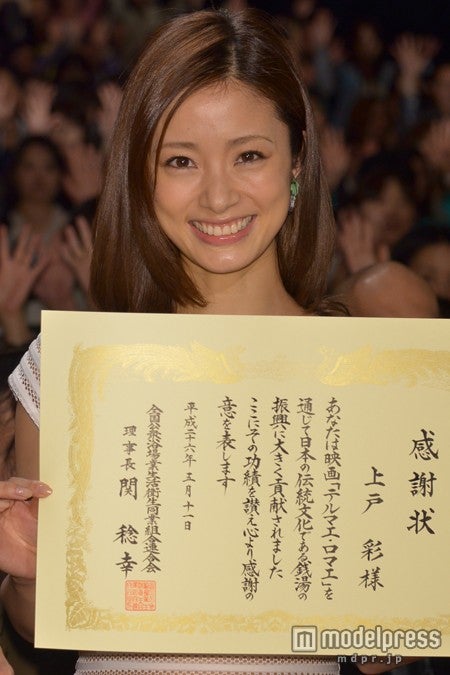 感謝状
上戸 彩 様
あなたは映画「テルマエ・ロマエ」を
通じて日本の伝統文化である銭湯の
振興に大きく貢献されました
ここにその功績を讃え心より感謝の
意を表します
平成二十六年五月十一日
全国公衆浴場業生活衛生同業組合連合会
理事長 関 稔幸
modelpress
mdpr.jp